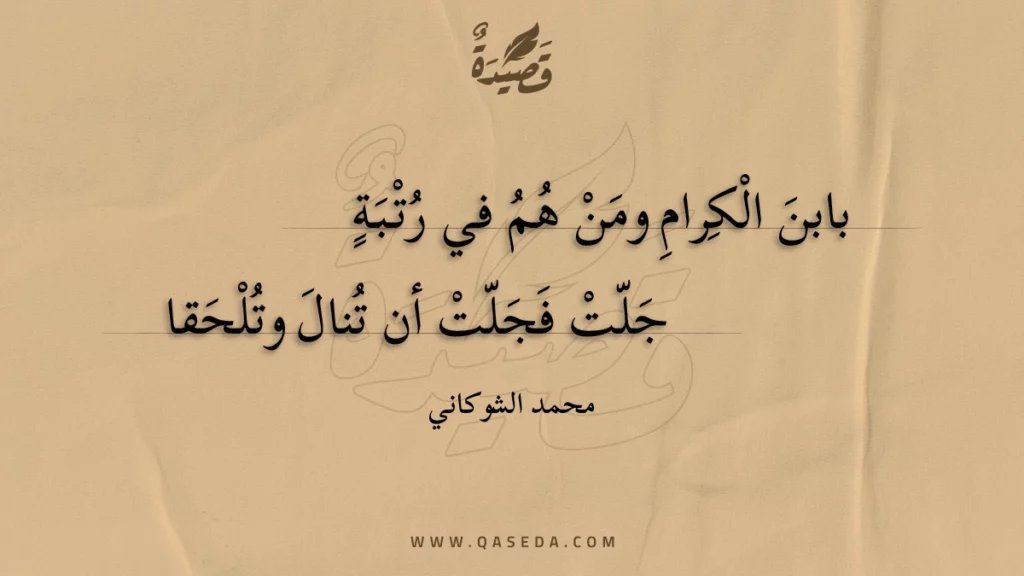 قَصِيدَةٌ
بابنَ الْكِرامِ ومَنْ هُمُ في رُتْبَةٍ
جَلّتْ فَجَلّتْ أن تُنالَ وتُلْحَقا
محمد الشوكاني
WWW.QASEDA.COM